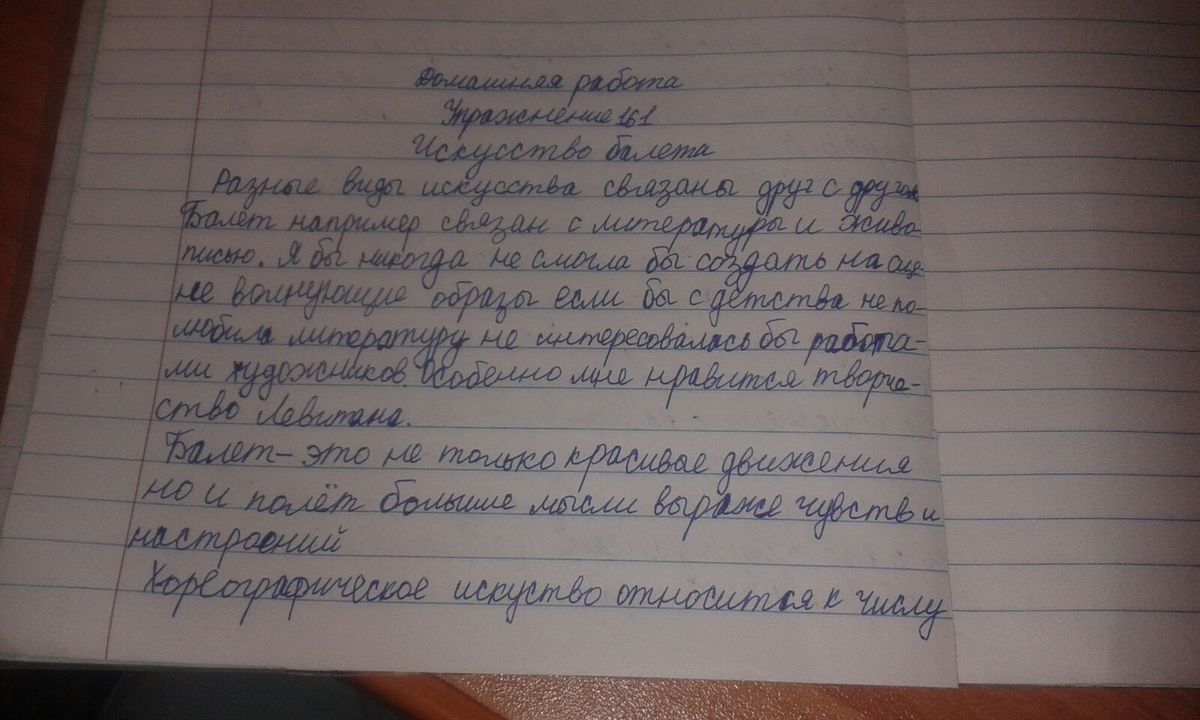 Домашняя работа
Упражнение 161
Искусство балета
Разные виды искусства связаны друг с другом
Балет например связан с литературы и живо-
писью. Я бы никогда не смогла бы создать на сце-
не волнующие образы если бы с детства не по-
любила литературу не интересовалась бы работа-
ми художников. Особенно мне нравится творче-
ство Левитана.
Балет - это не только красивые движения
но и полёт большие мысли выраже чувств и
настроений
Хореографическое искуство относится к числу